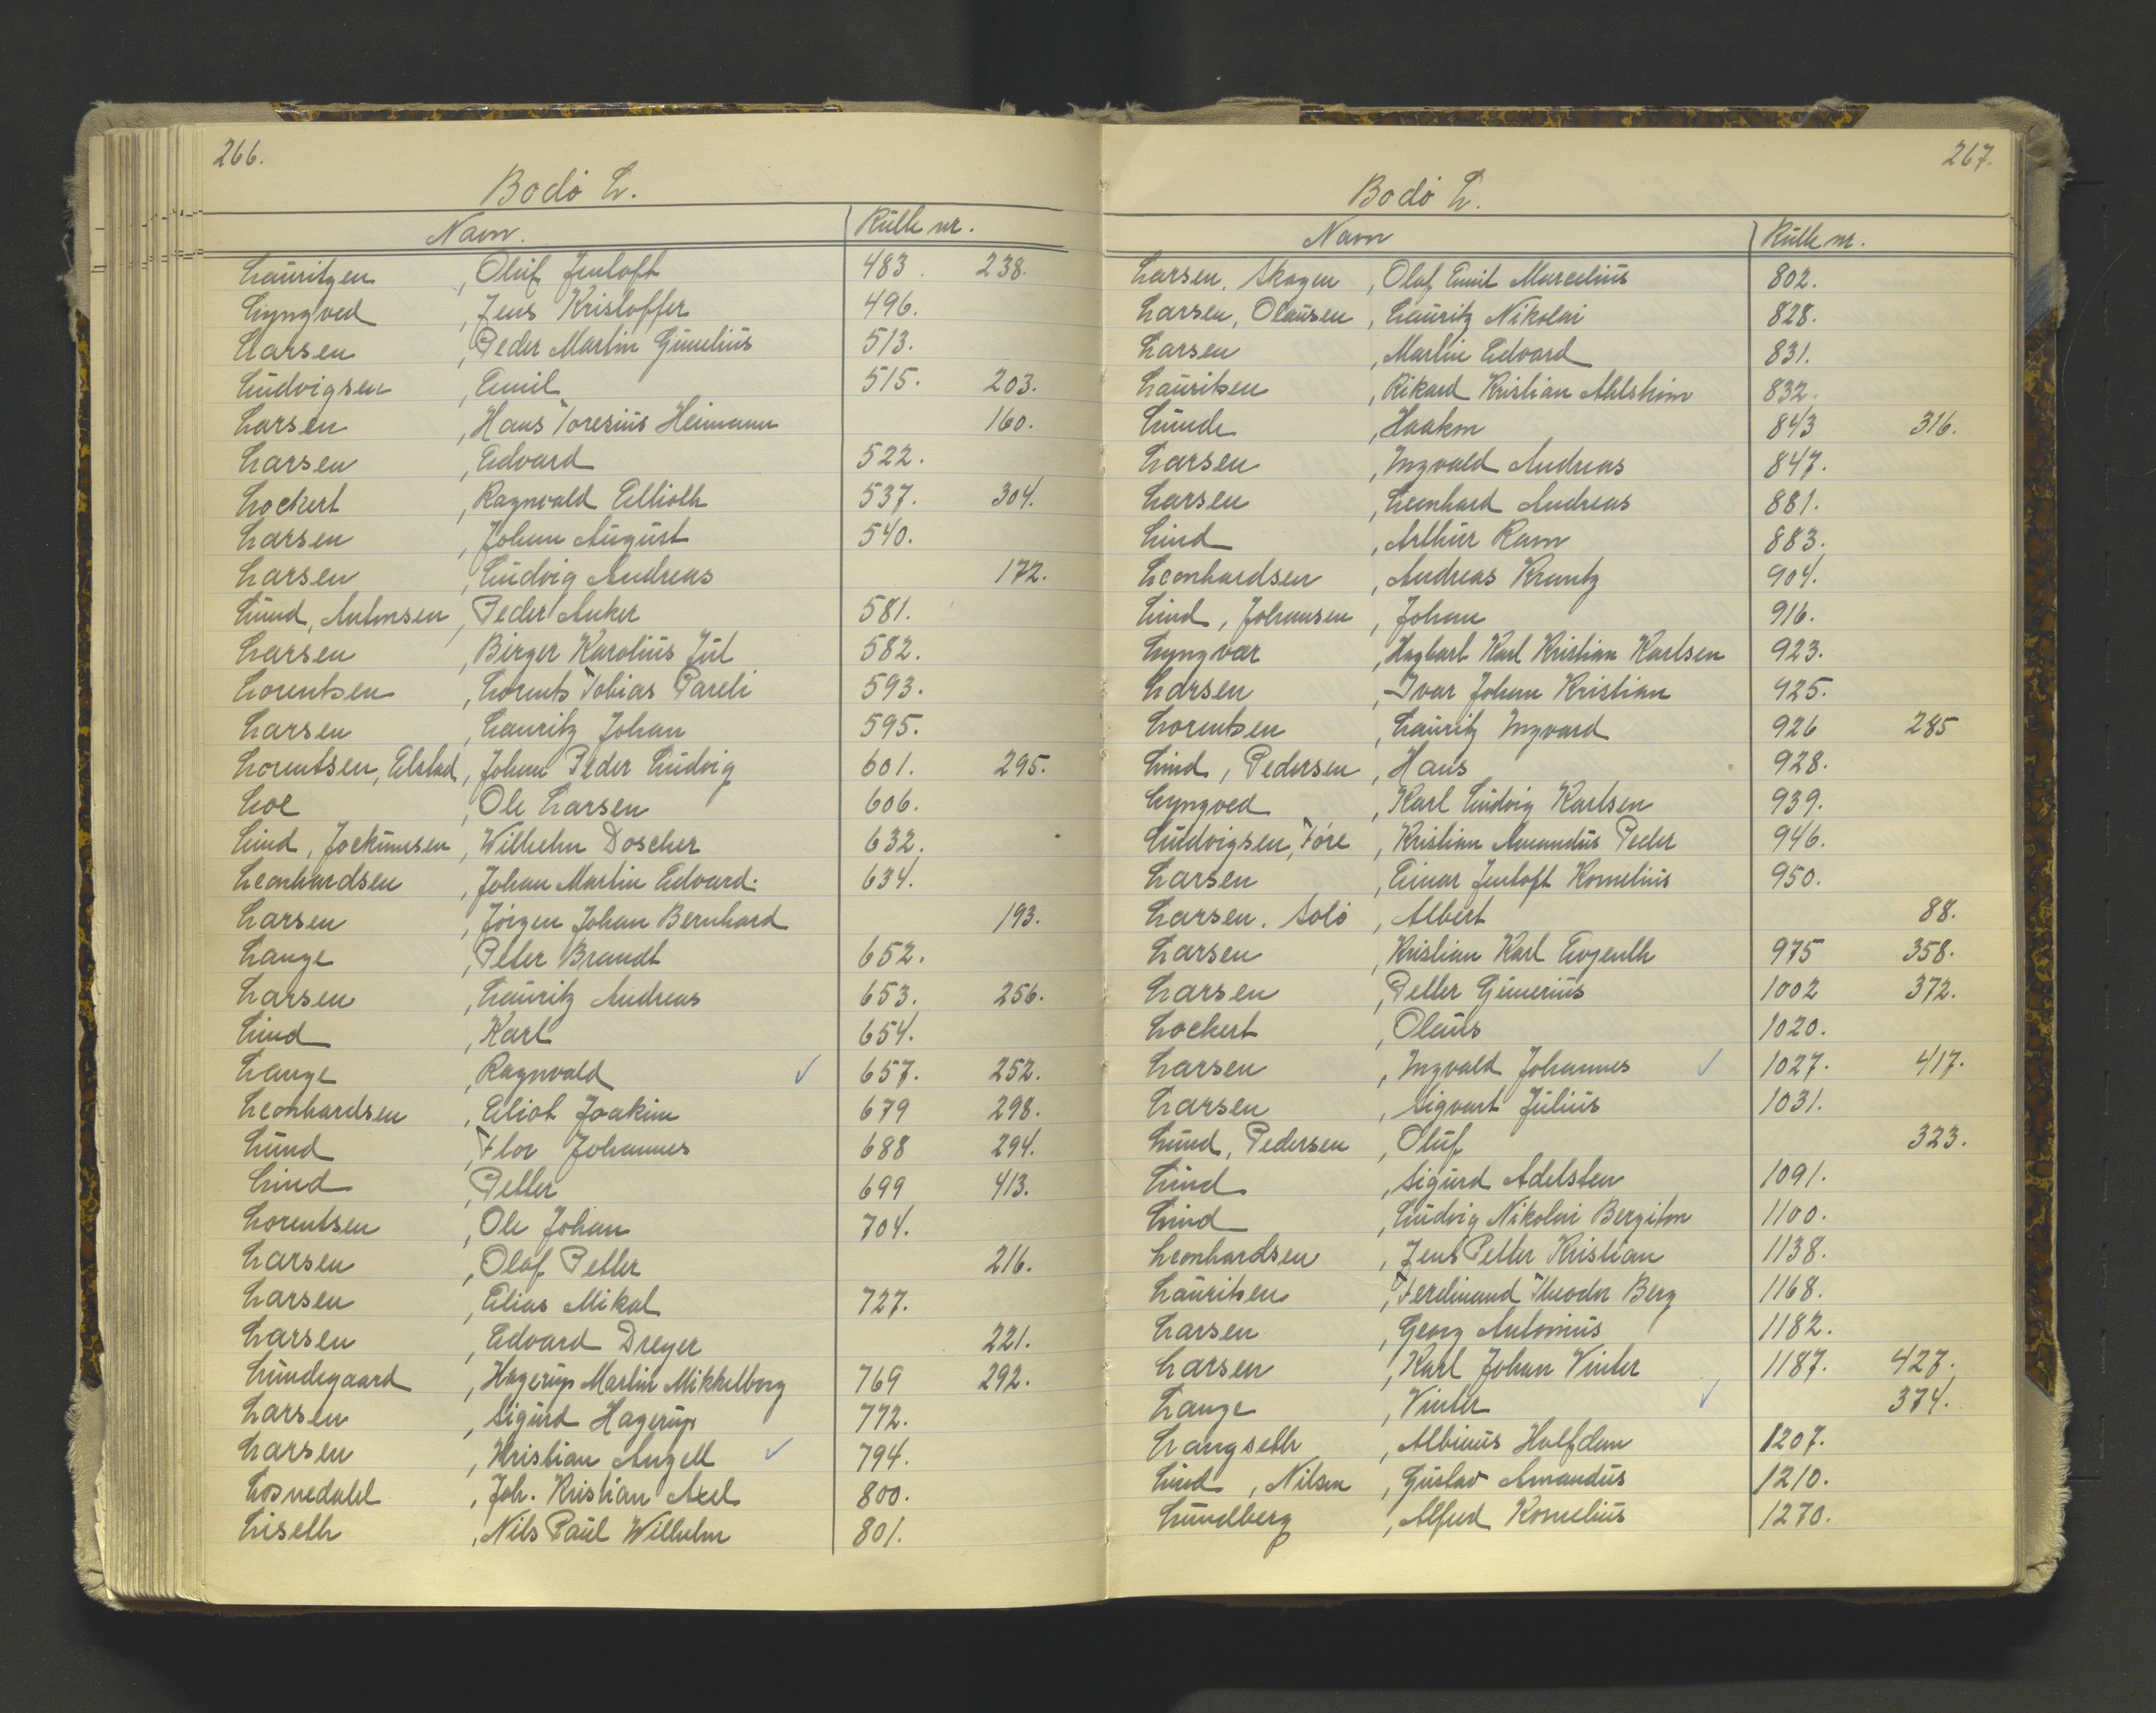 266.
Bodø L.
Navn. Rulle nr.
Lauritzen, Oluf Jentoft 483. 238.
Lyngved, Jens Kristoffer 496.
Larsen, Peder Martin Gunelius 513.
Ludvigsen, Emil 515. 203.
Larsen, Hans Toresius Heimann 160.
Larsen, Edvard 522.
Lockert, Ragnvald Ellioth 537. 304.
Larsen, Johan August 540.
Larsen, Ludvig Andreas 172.
Lund, Antonsen, Peder Anker 581.
Larsen, Birger Karolius Jul 582.
Lorentsen, Lorents Tobias Pareli 593.
Larsen, Lauritz Johan 595.
Lorentsen, Elstad, Johan Peder Ludvig 601. 295.
Loe, Ole Larsen 606.
Lind, Jockumsen, Wilhelm Doscher 632.
Leonhardsen, Johan Martin Edvard. 634.
Larsen, Jörgen Johan Bernhard 193.
Lange, Peter Brandt 652.
Larsen, Lauritz Andreas 653. 256.
Lind, Karl 654.
Lange, Ragnvald ✓ 657. 252.
Leonhardsen, Eliot Joakim 679 298.
Lund, Flor Johannes 688 294.
Lind, Petter 699 413.
Lorentsen, Ole Johan 704.
Larsen, Olaf Petter 216.
Larsen, Elias Mikal 727.
Larsen, Edvard Dreyer 221.
Lundegaard, Hagerup Martin Mikkelborg 769 292.
Larsen, Sigurd Hagerup 772.
Larsen, Kristian Angell ✓ 794.
Losnedahl, Joh. Kristian Axel 800.
Liseth, Nils Paul Wilhelm 801.
267.
Bodø L.
Navn Rulle nr.
Larsen, Skagen, Olaf Emil Marcelius 802.
Larsen, Olausen, Lauritz Nikolai 828.
Larsen, Martin Edvard 831.
Lauritsen, Rikard Kristian 832.
Lunde, Haakon 843 316.
Larsen, Ingvald Andreas 847.
Larsen, Leonhard Andreas 881.
Lind, Arthur Ravn 883.
Leonhardsen, Andreas Krantz 904.
Lind, Johansen, Johan 916.
Lyngvær, Hagbart Karl Kristian Karlsen 923.
Larsen, Ivar Johan Kristian 925.
Lorentsen, Lauritz Ingvard 926 285
Lind, Pedersen, Hans 928.
Lyngved, Karl Ludvig Karlsen 939.
Ludvigsen, Føre, Kristian Amandus Peder 946.
Larsen, Einar Jentoft Kornelius 950.
Larsen. Solø, Albert 88.
Larsen, Kristian Karl Evjenth 975 358.
Larsen, Petter Gunerius 1002 372.
Lockert, Olaus 1020.
Larsen, Ingvald Johannes ✓ 1027. 417.
Larsen, Sigvart Julius 1031.
Lund, Pedersen, Oluf 323.
Lind, Sigurd Adelsten 1091.
Lind, Ludvig Nikolai Bergiton 1100.
Leonhardsen, Jens Petter Kristian 1138.
Lauritsen, Ferdinand Theodor Berg 1168.
Larsen, Georg Antonius 1182.
Larsen, Karl Johan Vinter 1187. 427.
Lange, Vinter ✓ 374.
Langseth, Albinus Halfdan 1207.
Lind, Nilsen, Gustav Amandus 1210.
Lundberg, Alfred Kornelius 1270.